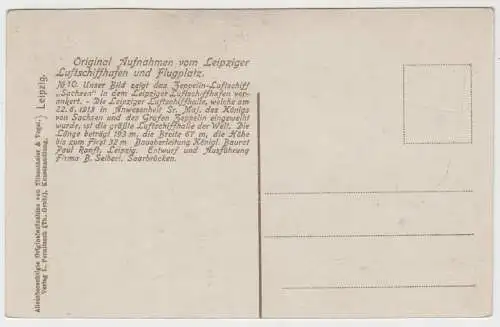 Original Aufnahmen vom Leipziger
Luftschiffhafen und Flugplatz.
No 10. Unser Bild zeigt das Zeppelin-Luftschiff
„Sachsen" in dem Leipziger Luftschiffhafen ver-
ankert. - Die Leipziger Luftschiffhalle, welche am
22. 6. 1913 in Anwesenheit Sr. Maj. des Königs
von Sachsen und des Grafen Zeppelin eingeweiht
wurde, ist die größte Luftschiffhalle der Welt. Die
Länge beträgt 193 m, die Breite 67 m, die Höhe
bis zum First 32 m Bauoberleitung Königl. Baurat
Paul Ranft, Leipzig. Entwurf und Ausführung
Firma B. Seibert. Saarbrücken.
Alleinberechtigte Originalaufnahme von &
Verlag Kunsthandlung, } Leipzig.